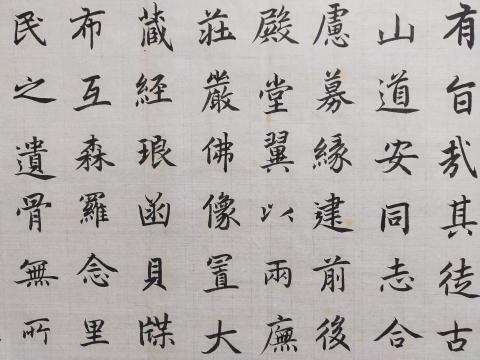 有旨哉其徒古
山道安同志合
慮募緣建前後
殿堂翼以兩廡
莊嚴佛像置大
藏經琅函貝牒
布互森羅念里
民之遺骨無所